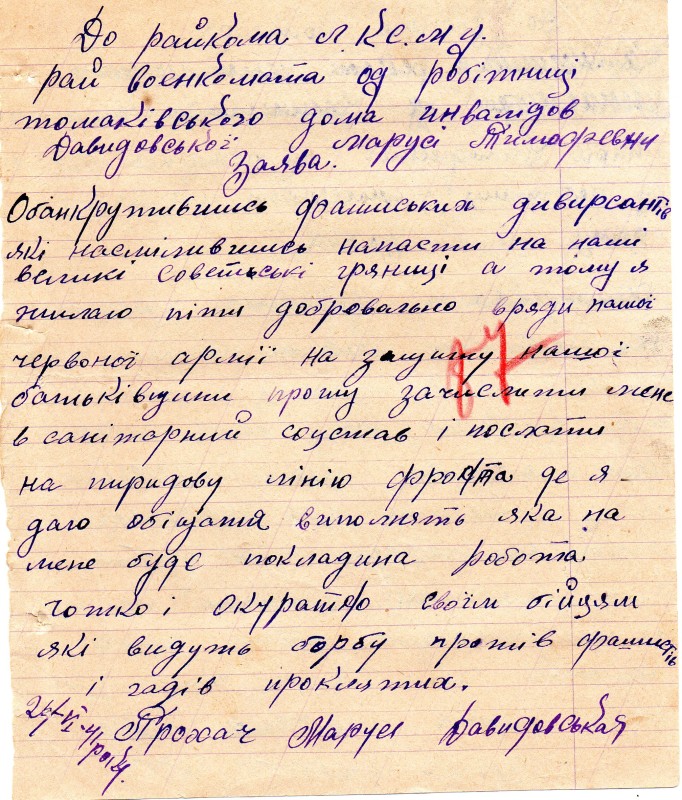 До райкома Л.К.С.М.У.
рай воєнкомата од робітниці
томаківського дома инвалідов
Давидовської Марусі Тимофевни
Заява.
Обанкрутившись фашиських дивирсантів
які насмілившись напасти на наші
великі советські гряниці а тому я
жилаю піти добровально вряди нашої
червоної армії на защиту нашої
батьківщини прошу зачислити мене
в санітарний соцстав і послати
на пиридову лінію фронта де я
даю обіщания виполнять яка на
мене буде покладина робота
чотко і окуратно своїм бійцям
які видуть борбу протів фашистів
і гадів проклятих.
Прохач Маруся Давидовськая
87